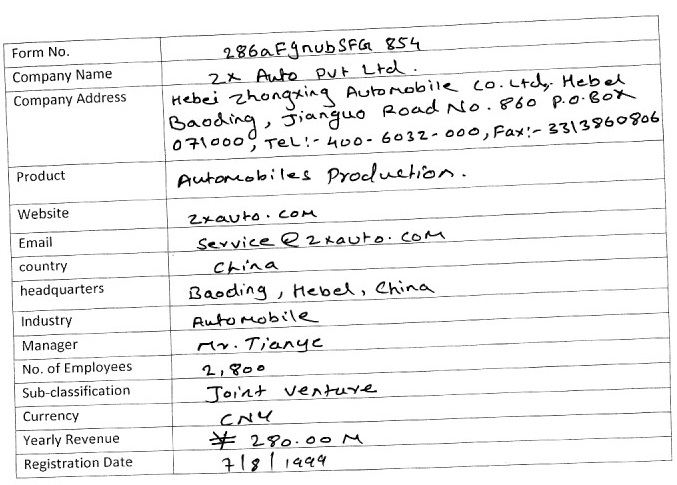 Form No. 286aFgnubSFG 854
Company Name 2x Auto Pvt Ltd.
Company Address Hebei Zhongxing Automobile co. Ltd, Hebel
Baoding, Jianguo Road No. 860 P.O.Box
071000, TeL:- 400-6032-000, Fax:- 3313860806
Product Automobiles Production.
Website 2xauto.com
Email service@2xauto.com
country China
headquarters Baoding, Hebel, China
Industry Automobile
Manager Mr. Tianye
No. of Employees 2,800
Sub-classification Joint venture
Currency CNY
Yearly Revenue ¥ 280.00 M
Registration Date 7/8/1999